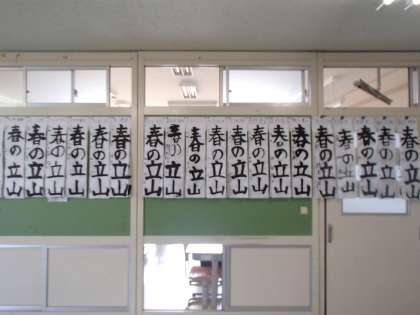 春の立山
春の立山
春の立山
春の立山
春の立山
春の立山
春の立山
春の立山
春の立山
春の立山
春の立山
春の立山
春の立山
春の立山
春の立山
春の立山
春の立山
春の立山
春の立山